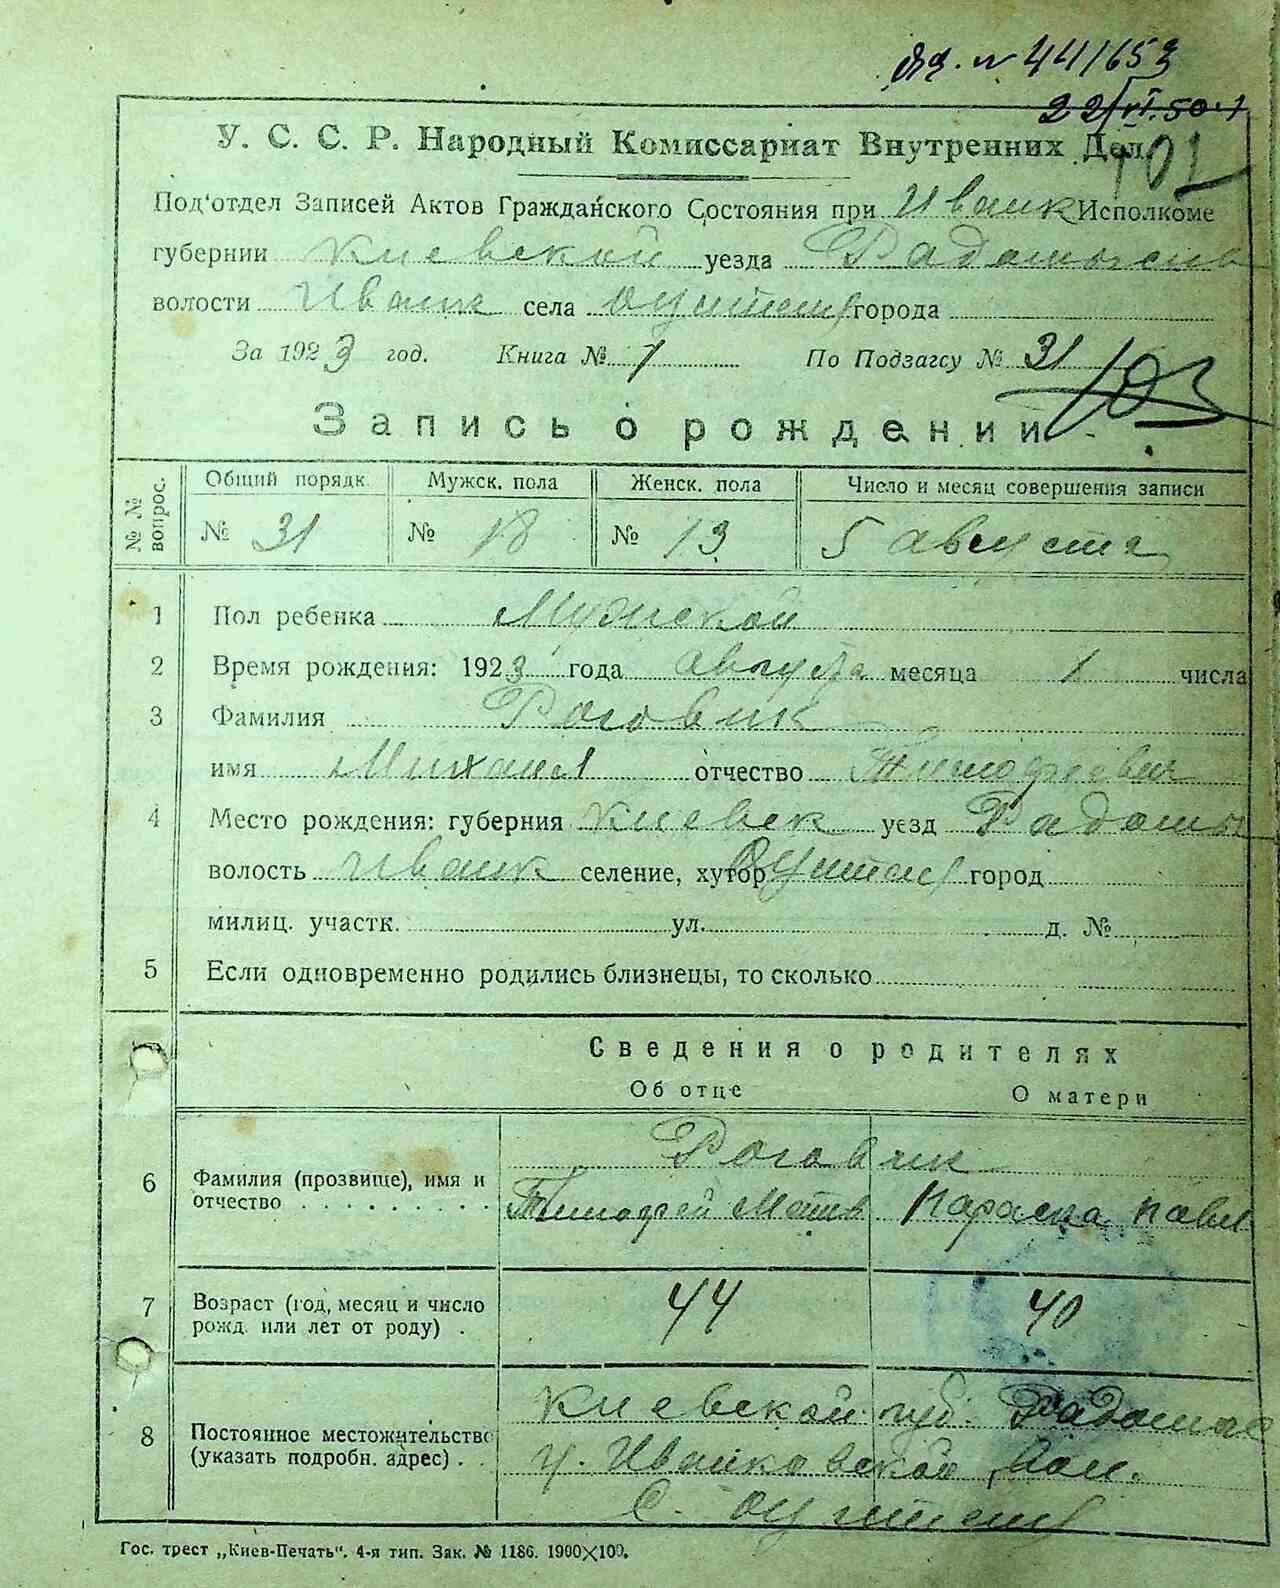 № 44/653
22/VI.50
У. С. С. Р. Народный Комиссариат Внутренних Дел.
101
Под'отдел Записей Актов Гражданского Состояния при Иванк Исполкоме
губернии Киевской уезда Радомысль
волости Иванк села города
За 1923 год. Книга № 1 По Подзагсу № 31
103
Запись о рождении
№№ вопрос. Общий порядк. Мужск. пола Женск. пола Число и месяц совершения записи
№ 31 № 18 № 13 5 августа
1 Пол ребенка Мужской
2 Время рождения: 1923 года августа месяца 1 числа
3 Фамилия Роговик
имя Михаил отчество Тимофеевич
4 Место рождения: губерния Киевск уезд Радомы
волость Иванк селение, хутор город
милиц. участк. ул. д. №
5 Если одновременно родились близнецы, то сколько
Сведения о родителях
Об отце О матери
Роговик
6 Фамилия (прозвище), имя и
отчество Тимофей Матв Параска Павл
7 Возраст (год, месяц и число 44 40
рожд. или лет от роду)
Киевской губ. Радомыс
8 Постоянное местожительство
(указать подробн. адрес) у. Иванковской вол.
С.
Гос. трест „Киев-Печать". 4-я тип. Зак. № 1186. 1900×100.